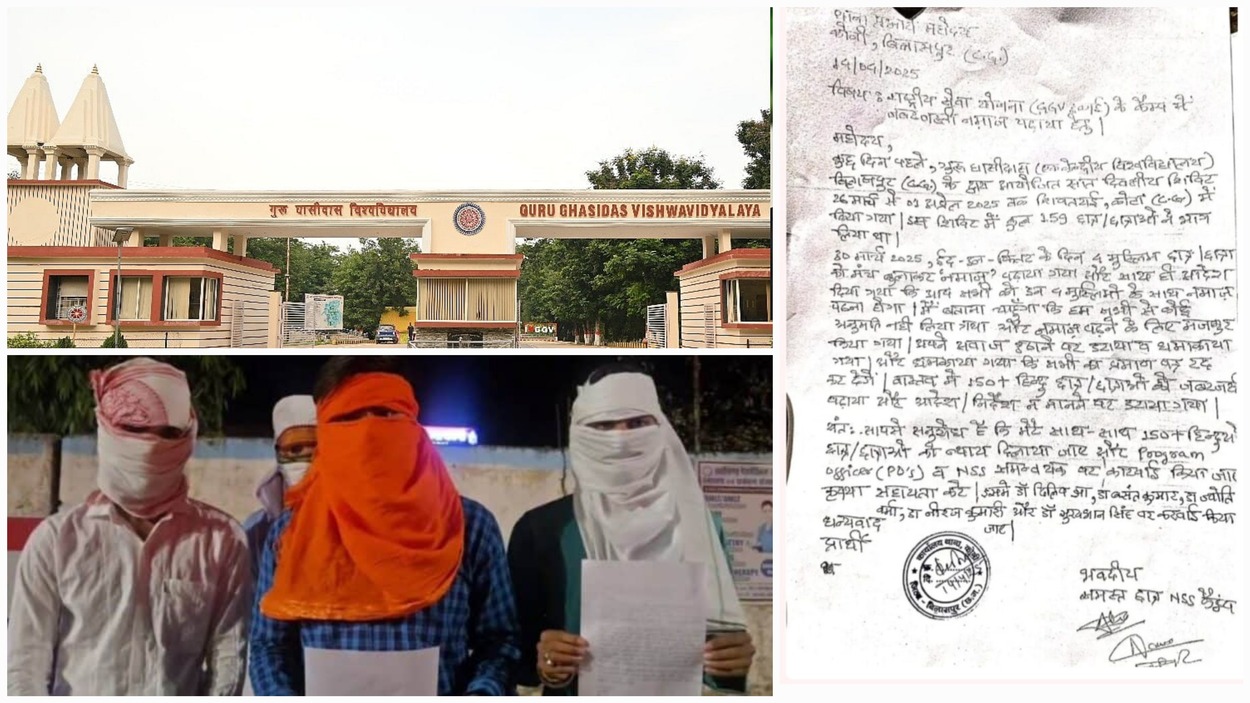 गुरु घासीदास विश्वविद्यालय
GURU GHASIDAS VISHWAVIDYALAYA
GGV
थाना प्रभारी महोदय
कोनी, बिलासपुर (C.G.)
14/04/2025
विषय : राष्ट्रीय सेवा योजना (GGV) के कैम्प में
जबरजस्ती नमाज पढ़ाया हेतु |
महोदय,
कुछ दिन पहले, गुरु घासीदास (केन्द्रीय विश्वविद्यालय)
बिलासपुर (C.G.) के द्वारा आयोजित सात दिवसीय शिविर
26 मार्च से 01 अप्रैल 2025 तक शिवतराई, कोटा (C.G) में
किया गया | इस शिविर में कुल 159 छात्र/छात्राओं ने भाग
लिया था |
30 मार्च 2025, ईद-उल-फितर के दिन 4 मुस्लिम छात्र/छात्रा
को मंच बुलाकर नमाज पढ़ाया गया और साथ ही आदेश
दिया गया कि आप सभी को इन 4 मुस्लिमो के साथ नमाज
पढ़ना होगा | मैं बताना चाहूँगा कि हम सभी से कोई
अनुमति नही लिया गया और नमाज पढ़ने के लिए मजबूर
किया गया | अपने आवाज उठाने पर डराया व धमकाया
गया | और धमकाया गया कि सभी का प्रमाण पत्र रद्द
कर देंगे | वास्तव में 150+ हिन्दु छात्र/छात्राओं को
पढ़ाया और आदेश/निर्देश न मानने पर डराया गया |
अंत: आपसे अनुरोध है कि मेरे साथ-साथ 150+ हिन्दुओ
छात्र/छात्राओं को न्याय दिलाया जाए और Program
officer (PO's) व NSS समन्वयक पर कारवाई किया जाए
कृपया सहायता करे | इसमे डॉ दिलिप झा, डॉ बसंत कुमार, डॉ ज्योति
वर्मा, डॉ नीरज कुमारी और डॉ सूर्यभान सिंह पर कारवाई किया
जाए |
धन्यवाद
प्रार्थी
भवदीय
समस्त छात्र NSS कैम्प